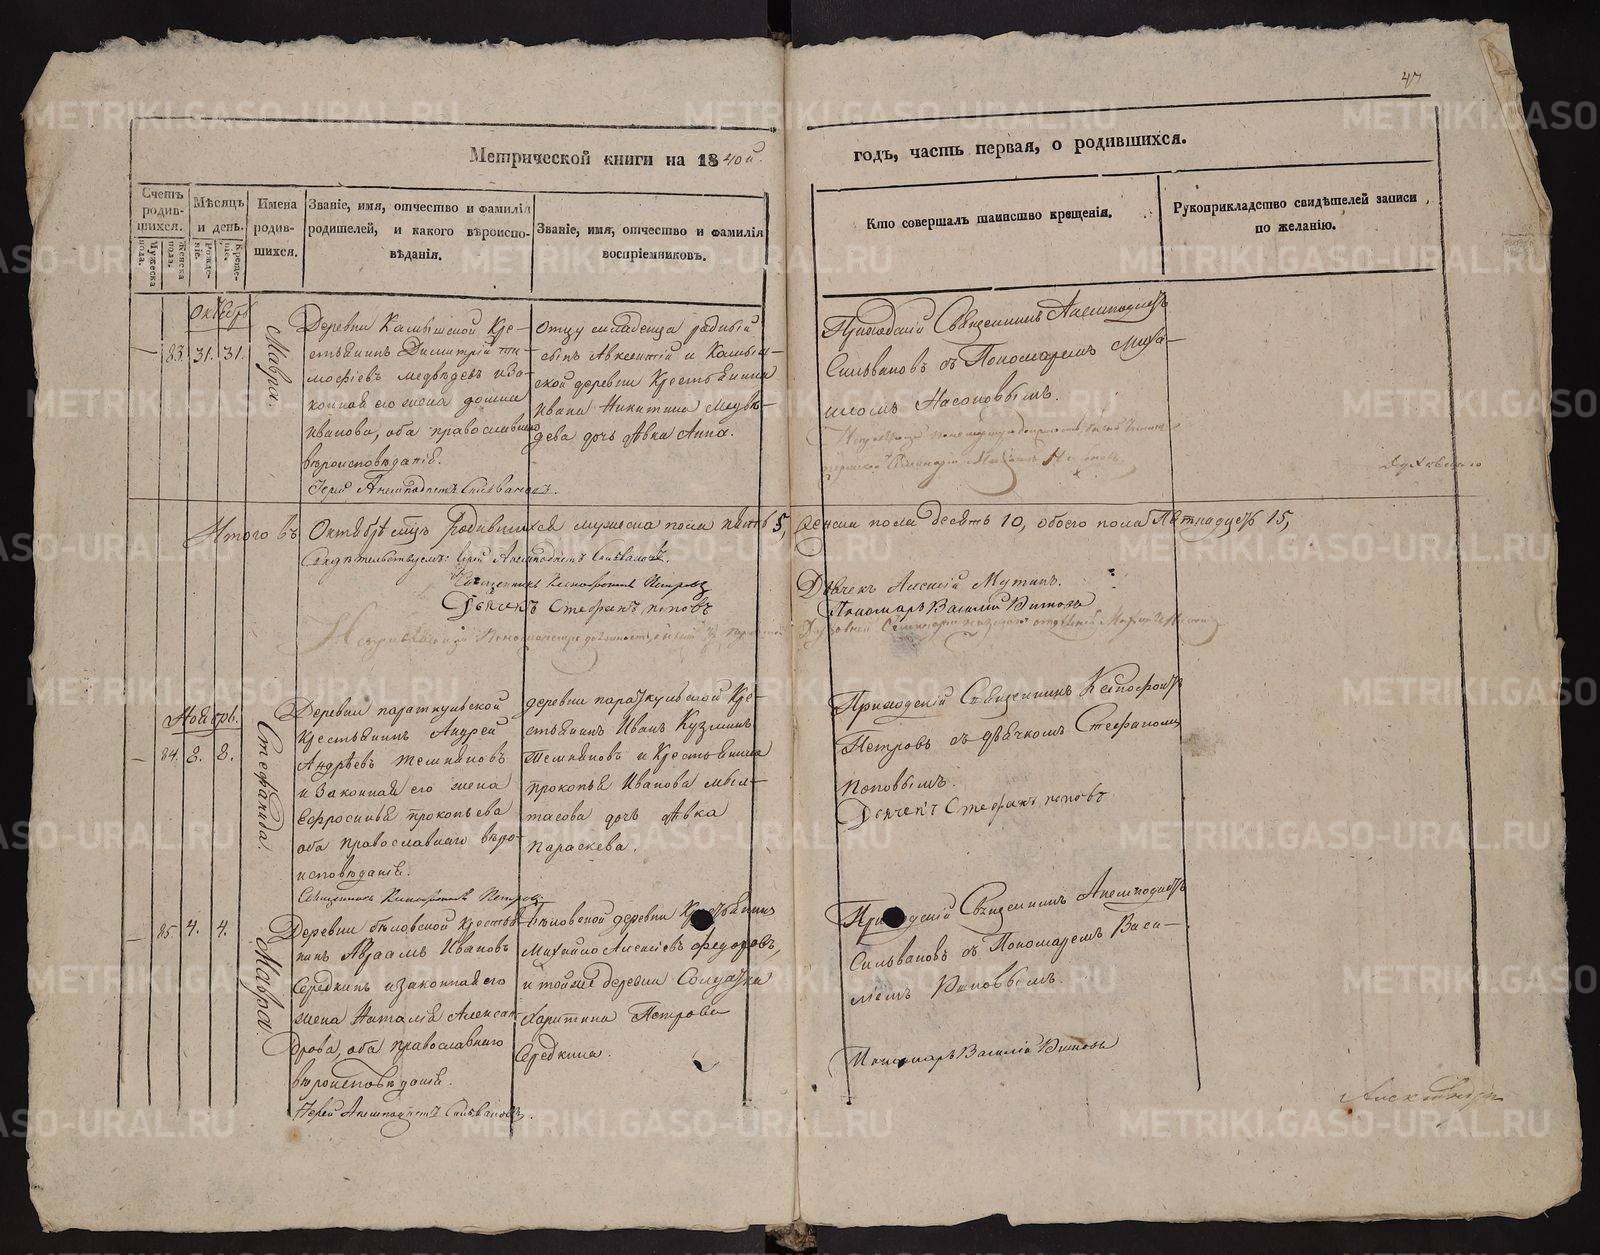 47
Метрической книги на 1840й.
годъ, часть первая, о родившихся.
Счетъ родив-шихся.
Мужеска пола.
Женска пола.
Мѣсяцъ и день.
Рожде-нія.
Креще-нія.
Имена родив-шихся.
Званіе, имя, отчество и фамилія
родителей, и какого вѣроиспо-
вѣданія.
Званіе, имя, отчество и фамилія
воспріемниковъ.
Кто совершалъ таинство крещенія.
Рукоприкладство свидѣтелей записи
по желанію.
Октябрь
83. 31. 31.
Мавра.
Деревни Камышской Кре-
стьянинъ Димитрій Ти-
мофѣевъ Медвѣдевъ и за-
конная его жена Домна
Иванова, оба православнаго
вѣроисповѣданія.
Іерей Анемподистъ Сильвановъ.
Отцу младенца родный
сынъ Авксентій и Камыш-
ской деревни Крестьянина
Ивана Никитина Медвѣ-
дева дочь дѣвка Анна.
Приходскій Священникъ Анемподистъ
Сильвановъ съ Пономаремъ Миха-
иломъ Насоновымъ.
Итого въ Октябрѣ мцѣ родившихся мужеска пола пять 5, женска пола десять 10, обоего пола пятнадцать 15,
Свидѣтельствуемъ: Іерей Анемподистъ Сильвановъ.
Священникъ Ксенофонтъ Петровъ
Дьячекъ Стефанъ Поповъ
Дьячекъ Алексій Мутинъ.
Пономарь Василій
Ноябрь.
84. 2. 8.
Стефанида.
Деревни Параткульской
Крестьянинъ Андрей
Андрѣевъ Темняковъ
и законная его жена
Евфросинья Прокопьева
оба православнаго вѣро-
исповѣданія.
Священникъ Ксенофонтъ Петровъ
деревни Параткульской Кре-
стьянинъ Иванъ Кузминъ
Темняковъ и Крестьянина
Прокопья Иванова
дочь дѣвка
Параскева.
Приходскій Священникъ Ксенофонтъ
Петровъ съ дьячкомъ Стефаномъ
Поповымъ.
Дьячекъ Стефанъ Поповъ
85. 4. 4.
Мавра.
Деревни Бѣловской Крестья-
нинъ Авраамъ Ивановъ
Середкинъ и законная его
жена Наталія Алексан-
дрова, оба православнаго
вѣроисповѣданія.
Іерей Анемподистъ Сильвановъ.
Бѣловской деревни Крестьянинъ
Михайло Алексіевъ Федоровъ,
и тойже деревни Солдатка
Харитина Петрова
Середкина.
Приходскій Священникъ Анемподистъ
Сильвановъ съ Пономаремъ Васи-
ліемъ
Пономарь Василій